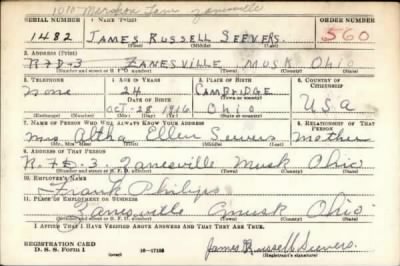 1010 Mershon Zanesville
SERIAL NUMBER 1. NAME (Print) ORDER NUMBER
1482 JAMES RUSSELL SEEVERS. 560
(First) (Middle) (Last)
2. ADDRESS (Print)
R-F-D-3 ZANESVILLE MUSK OHIO
(Number and street or R. F. D. number) (Town) (County) (State)
3. TELEPHONE 4. AGE IN YEARS 5. PLACE OF BIRTH 6. COUNTRY OF CITIZENSHIP
None 24 CAMBRIDGE
DATE OF BIRTH (Town or county)
OCT-28-1916 Ohio U.S.A
(Exchange) (Number) (Mo.) (Day) (Yr.) (State or country)
7. NAME OF PERSON WHO WILL ALWAYS KNOW YOUR ADDRESS 8. RELATIONSHIP OF THAT PERSON
Mrs. Altha Ellen Seevers Mother
(Mr., Mrs., Miss) (First) (Middle) (Last)
9. ADDRESS OF THAT PERSON
R.F.D-3. Zanesville Musk Ohio
(Number and street or R. F. D. number) (Town) (County) (State)
10. EMPLOYER'S NAME
Frank Philips
11. PLACE OF EMPLOYMENT OR BUSINESS
Zanesville Musk Ohio
(Number and street or R. F. D. number) (Town) (County) (State)
I AFFIRM THAT I HAVE VERIFIED ABOVE ANSWERS AND THAT THEY ARE TRUE.
REGISTRATION CARD
D. S. S. Form 1 16-17105 James Russell Seevers.